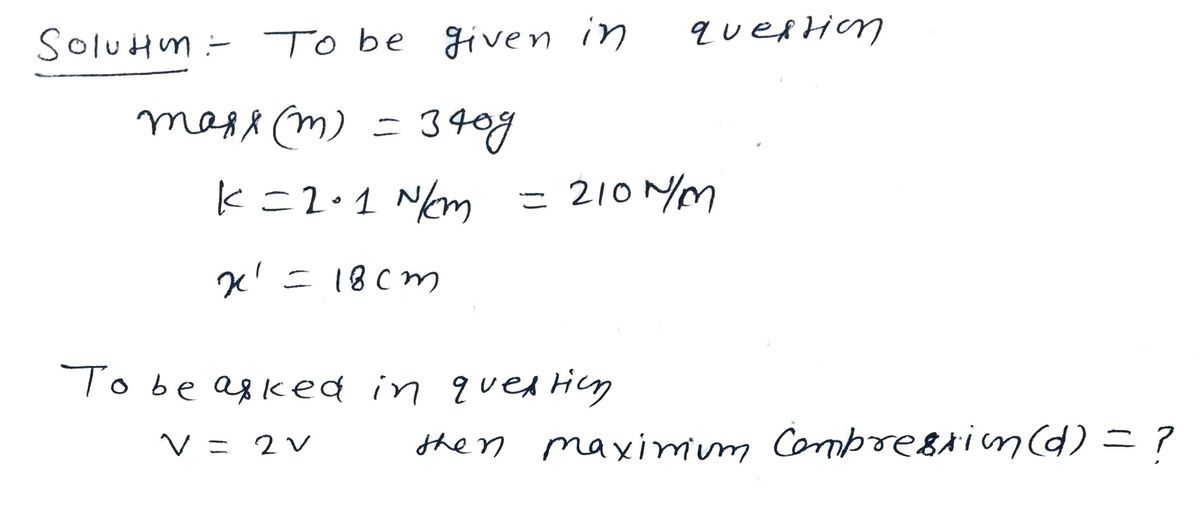 Solution :- To be given in question
mass (m) = 340g
k = 2.1 N/cm = 210 N/m
x' = 18cm
To be asked in question
V = 2V then maximum Combression (d) = ?